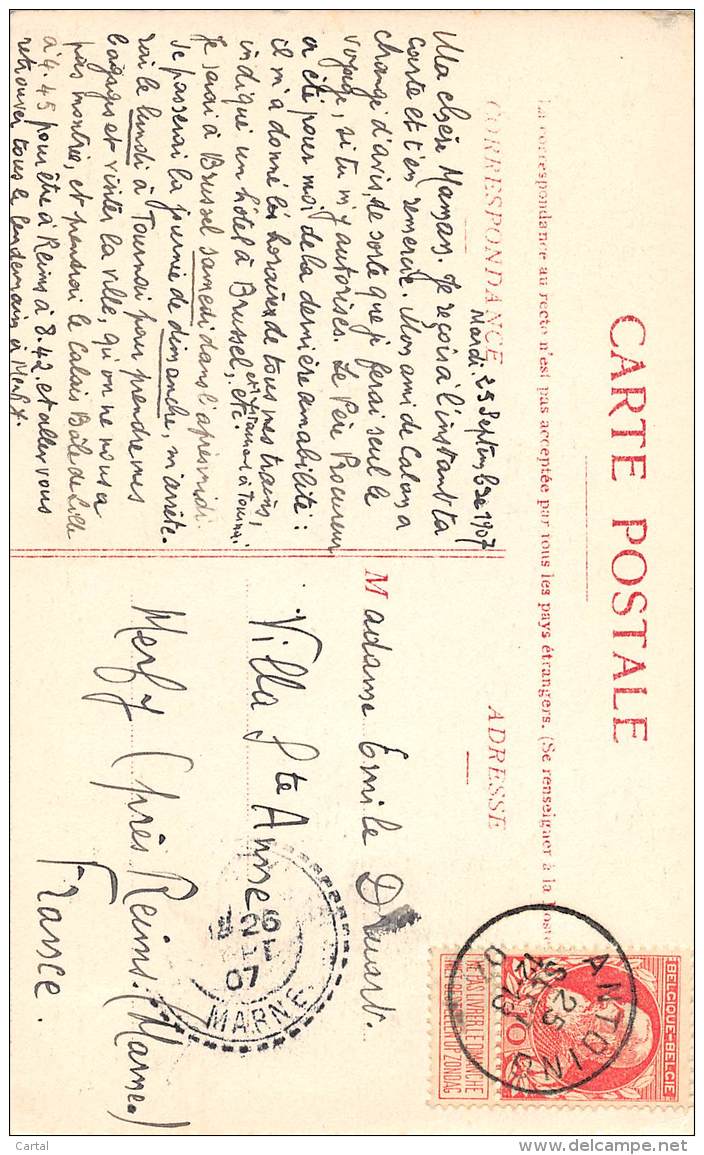 CARTE POSTALE
La correspondance au recto n'est pas acceptée par tous les pays étrangers. (Se renseigner à la Poste
CORRESPONDANCE
ADRESSE
Mardi 25 Septembre 1907
Ma chère Maman. Je reçois à l'instant ta
carte et t'en remercie. Mon ami de Calonza
change d'avis, de sorte que je ferai seul le
voyage, si tu m'y autorises. Le Père Procureur
a été pour moi de la dernière amabilité :
il m'a donné les horaires de tous mes trains,
indiqué un hôtel à Brussel, etc.
et à Tournai
Je serai à Brussel samedi dans l'après midi.
Je passerai la journée de dimanche, m'arrête-
rai le lundi à Tournai pour prendre mes
bagages et visiter la ville, qu'on ne nous a
pas montrée, et prendrai le Calais Bâle de Lille
à 4.45 pour être à Reims à 8.42. et aller vous
retrouver tous le lendemain à Merfy.
Madame Emile Druart.
Villa Ste Anne
Merfy (près Reims. (Marne)
France.
BELGIQUE-BELGIE
10
NE PAS LIVRER LE DIMANCHE
NIET BESTELLEN OP ZONDAG
ANTOING
25
SEPT
12-13
07
26
07
MARNE
Cartal
©www.delcampe.net